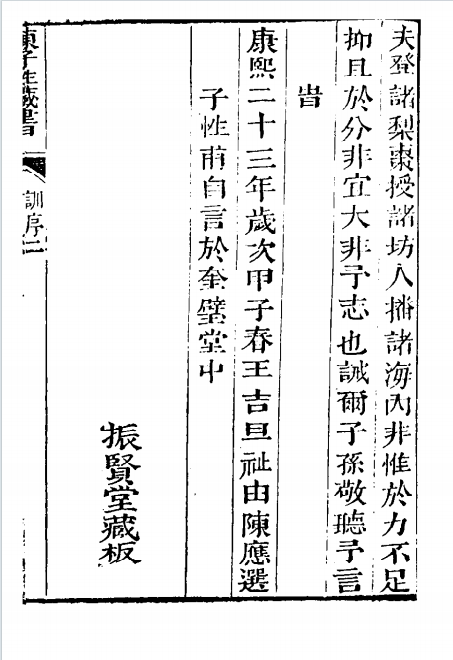 夫登諸梨棗授諸坊人播諸海內非惟於力不足
抑且於分非宜大非予志也誡爾子孫敬聽予言
旹
康熙二十三年歲次甲子春王吉旦祉由陳應選
子性甫自言於奎璧堂中
振賢堂藏板
陳子性藏書
訓序二